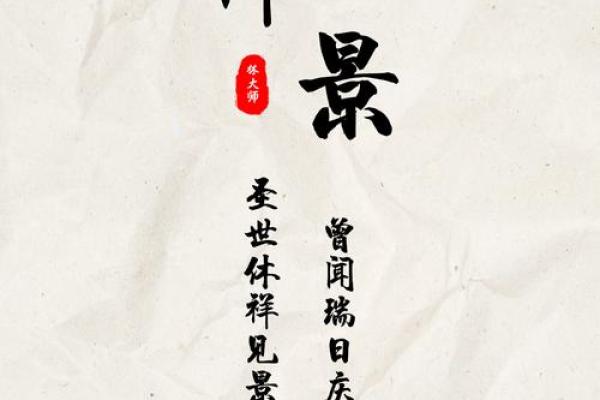 景
大师
曾闻瑞日庆
圣世休祥见景